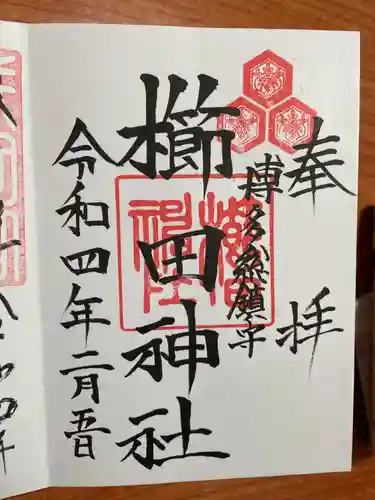 奉拝
博多総鎮守
櫛田神社
令和四年二月五日